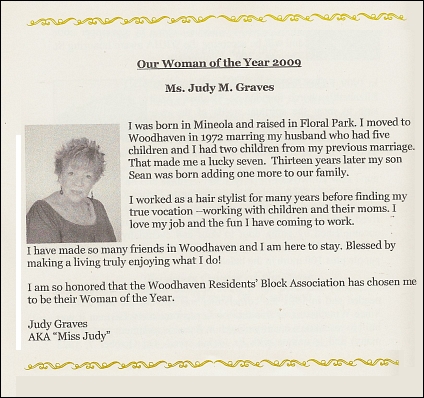 Our Woman of the Year 2009
Ms. Judy M. Graves
I was born in Mineola and raised in Floral Park. I moved to
Woodhaven in 1972 marring my husband who had five
children and I had two children from my previous marriage.
That made me a lucky seven. Thirteen years later my son
Sean was born adding one more to our family.
I worked as a hair stylist for many years before finding my
true vocation –working with children and their moms. I
love my job and the fun I have coming to work.
I have made so many friends in Woodhaven and I am here to stay. Blessed by
making a living truly enjoying what I do!
I am so honored that the Woodhaven Residents' Block Association has chosen me
to be their Woman of the Year.
Judy Graves
AKA “Miss Judy”